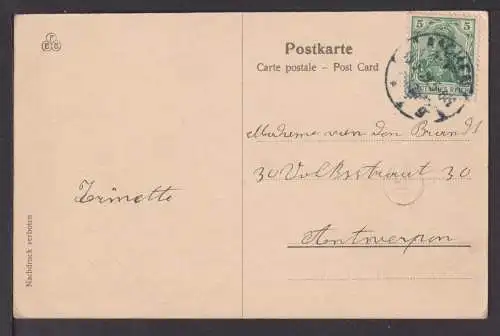 Postkarte
Carte postale – Post Card
5 5
DEUTSCHES REICH
Madame van den Brandt
30 Volksstraat 30
Antwerpen
Trinette
Nachdruck verboten